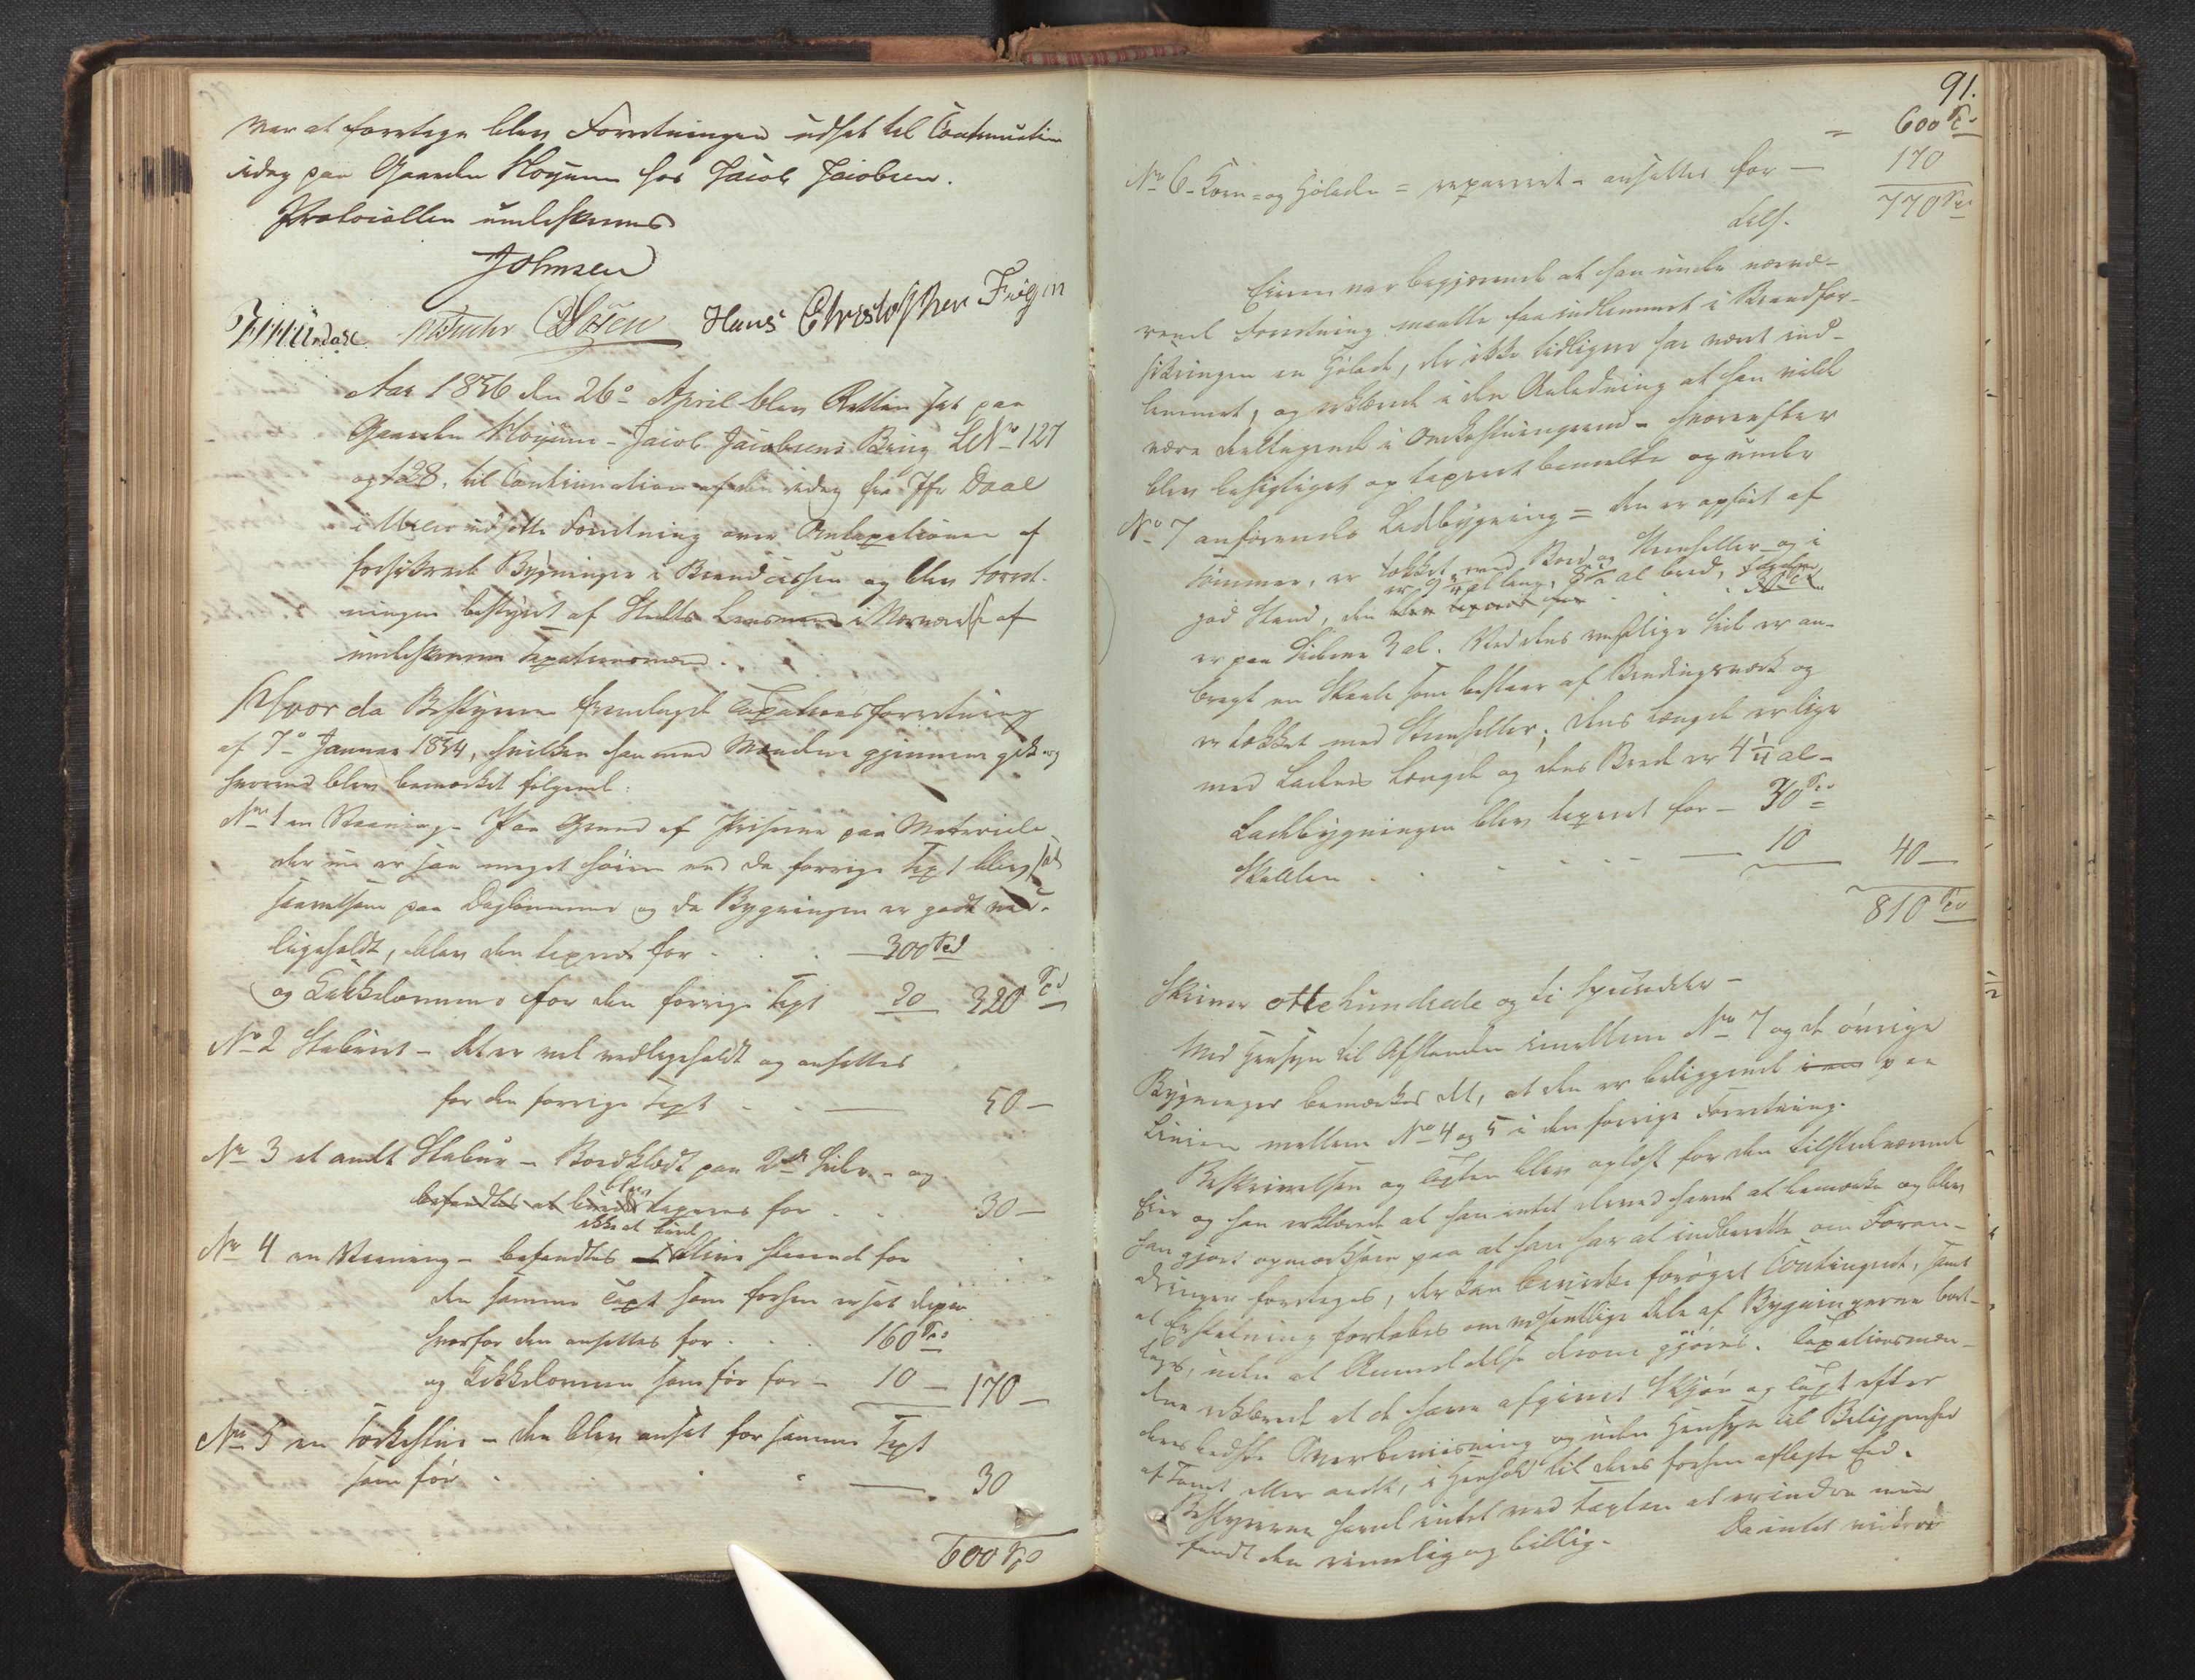 var at foretage blev Forretningen udsat til Continuation
idag paa Gaarden Høyum hos Jacob Jacobsen.
Protocollen underskrives
Johnsen
Hans Christopher
Aar 1856 den 26de April blev Retten sat paa
Gaarden Høyum – Jacob Jacobsens Brug LNo 127
og 128, til Continuation af den idag fra Daae
i udsatte Forretning over Omtaxationen af
forsikrede Bygninger i Brandcassen og blev Forret-
ningen bestyret af Stedets Lensmand i Nærvær af
underskrevne Taxationsmænd.
Hvorda Bestyreren fremlagde Taxationsforretning
af 7de Januar 1854, hvilken han med Mændene gjennemgik og
hvorved blev bemærket følgende:
No 1 en Vaaning – Paa Grund af Priserne paa Materiale
der nu er saa meget høiere end da forrige Taxt blev sat
saavelsom paa Daglønnene og da Bygningen er godt ved-
ligeholdt, blev den taxeret for . . . 300 Spd
og Kakkelovnene for den forrige Taxt 20 320 Spd
No 2 Stabur – det er vel vedligeholdt og ansættes
for den forrige Taxt . . — 50 —
No 3 et andet Stabur – Bordklædt paa 2de Sider – og
befandtes at blev taxeres for . . . 30 —
ikke at
No 4 en Vaaning – befandtes blive staaende for
den samme Taxt som forhen er sat derpaa
hvorfor den ansættes for . . . 160 Spd
og Kakkelovnen som før for – 10 — 170 —
No 5 en Torkestue – den blev ansat for samme Taxt
som før . . . — 30
600 Spd
91.
= 600 Spd
No 6 – Korn- og Hølade = repareret – ansættes for — 170
Lels. 770 Spd
Eieren var begjærende at han under nærvæ-
rende Forretning maatte faa indlemmet i Brandfor-
sikringen en Hølade, der ikke tidligere har været ind-
lemmet, og erklærede i den Anledning at han vilde
være deeltagende i Omkostningerne – hvorefter
blev besigtiget og taxeret bemeldte og under
No 7 anførendes Ladebygning = den er opført af
Tømmer, er tækket med Bord og Steenheller og i
er 9 al lang, 8½ al bred,
god Stand, den blev taxeret for . . . 30 Spd
er paa Siderne 3 al. Ved dens vestlige Side er an-
bragt en Skaale som bestaaer af Bindingsværk og
er tækket med Steenheller; dens Længde er lige
med Ladens Længde og dens Brede er 4 al –
Ladebygningen blev taxeret for – 30 Spd
Skaalen . . . — 10 40 —
810 Spd
Skriver otte hundrede og ti Speciedaler –
Med Hensyn til Afstanden imellem No 7 og de øvrige
Bygninger bemærkes det, at den er beliggende paa
Linien mellem No 4 og 5 i den forrige Forretning.
Beskrivelsen og Taxten blev oplæst for den tilstedeværende
Eier og han erklærede at han intet derved havde at bemærke og blev
han gjort opmærksom paa at han har at indberette om Foran-
dringer foretages, der kan bevirke forøget Contingent, samt
at Erstatning fortabes om væsentlige Dele af Bygningerne bort-
tages, uden at Anmeldelse derom gjøres. Taxationsmæn-
dene erklærede at de have afgivet Skjøn og Taxt efter
deres bedste Overbeviisning og uden Hensyn til Beliggenhed
af Tomt eller andet, i Henhold til deres forhen aflagte Eed.
Bestyreren havde intet ved Taxten at erindre men
fandt den rimelig og billig. Da intet videre